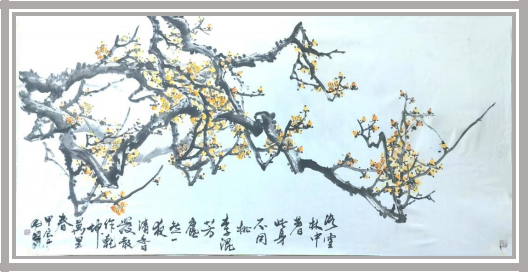 冰雪
林中
著
此身
不同
桃
李混
芳
塵
然一
夜
清香
發散
作乾
坤
萬里
春
甲辰